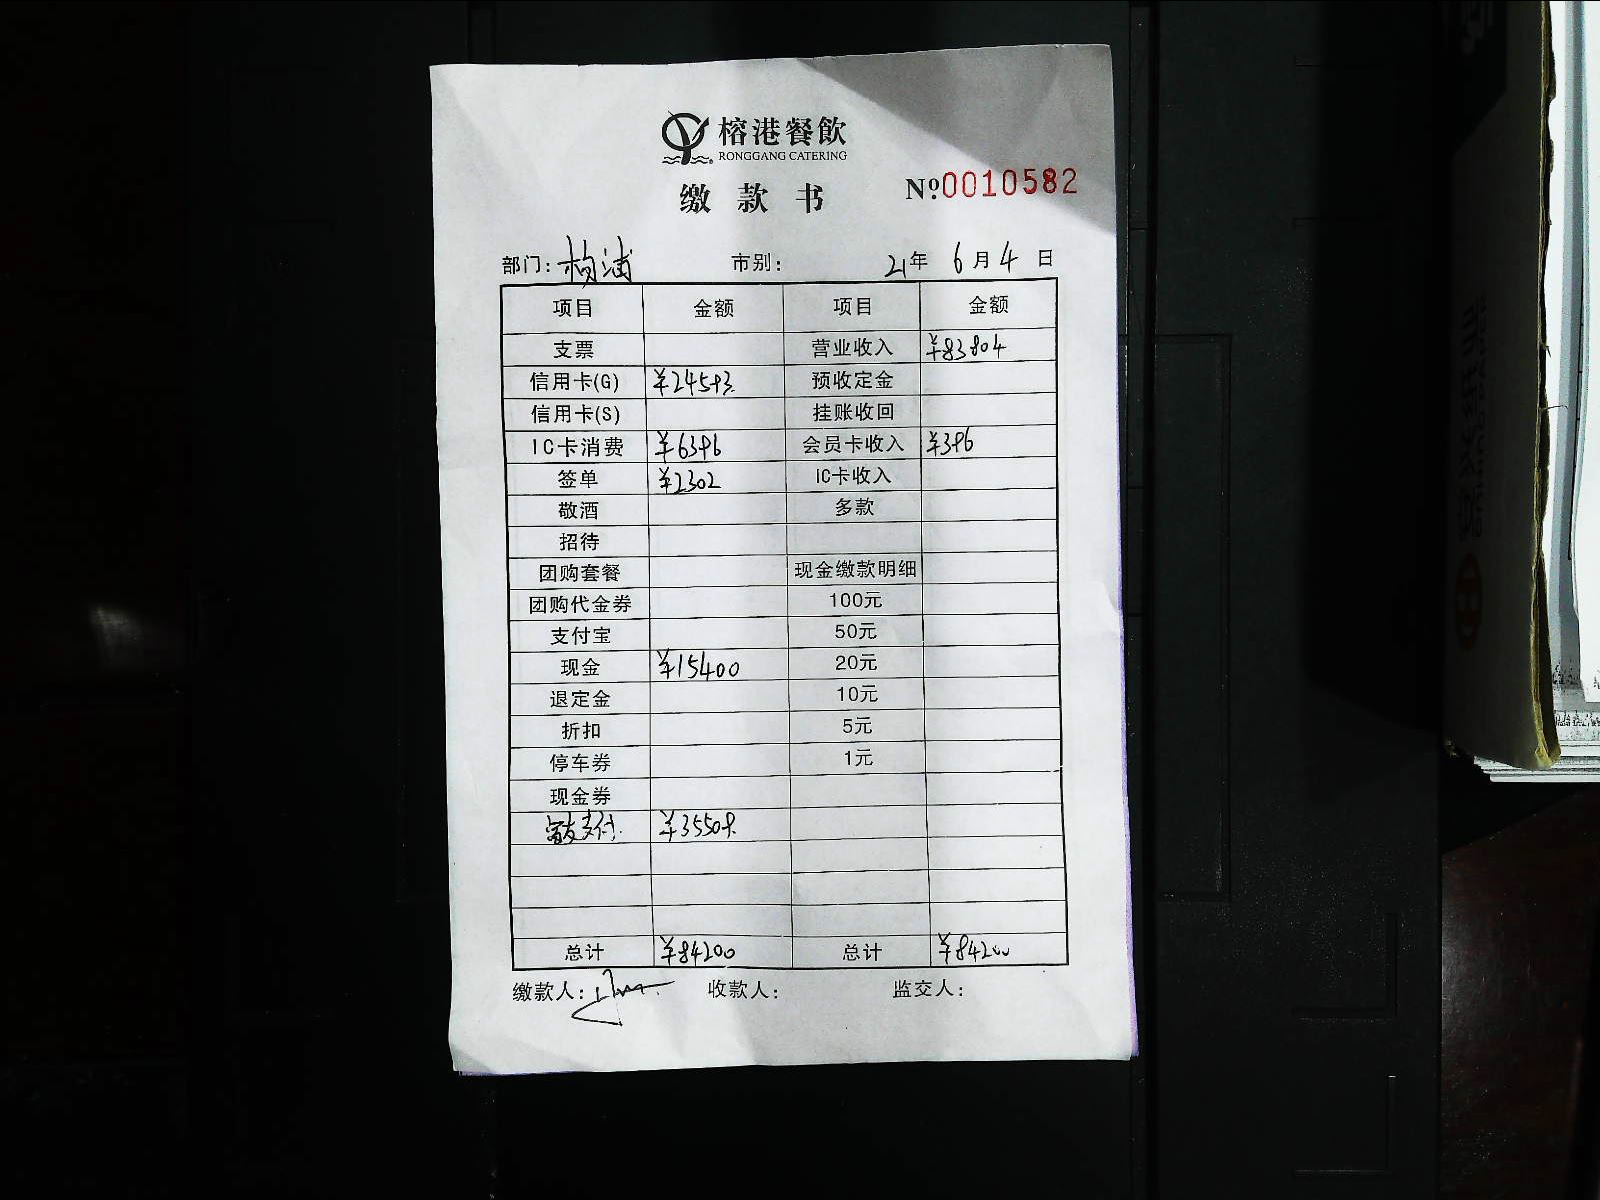 榕港餐飲
RONGGANG CATERING
缴款书 №0010582
部门：杨浦 市别： 21年 6月 4日
项目 金额 项目 金额
支票 营业收入 ¥83804
信用卡(G) ¥24593 预收定金
信用卡(S) 挂账收回
IC卡消费 ¥6396 会员卡收入 ¥396
签单 ¥2302 IC卡收入
敬酒 多款
招待
团购套餐 现金缴款明细
团购代金券 100元
支付宝 50元
现金 ¥15400 20元
退定金 10元
折扣 5元
停车券 1元
现金券
富友支付 ¥35509
总计 ¥84200 总计 ¥84200
缴款人： 收款人： 监交人：